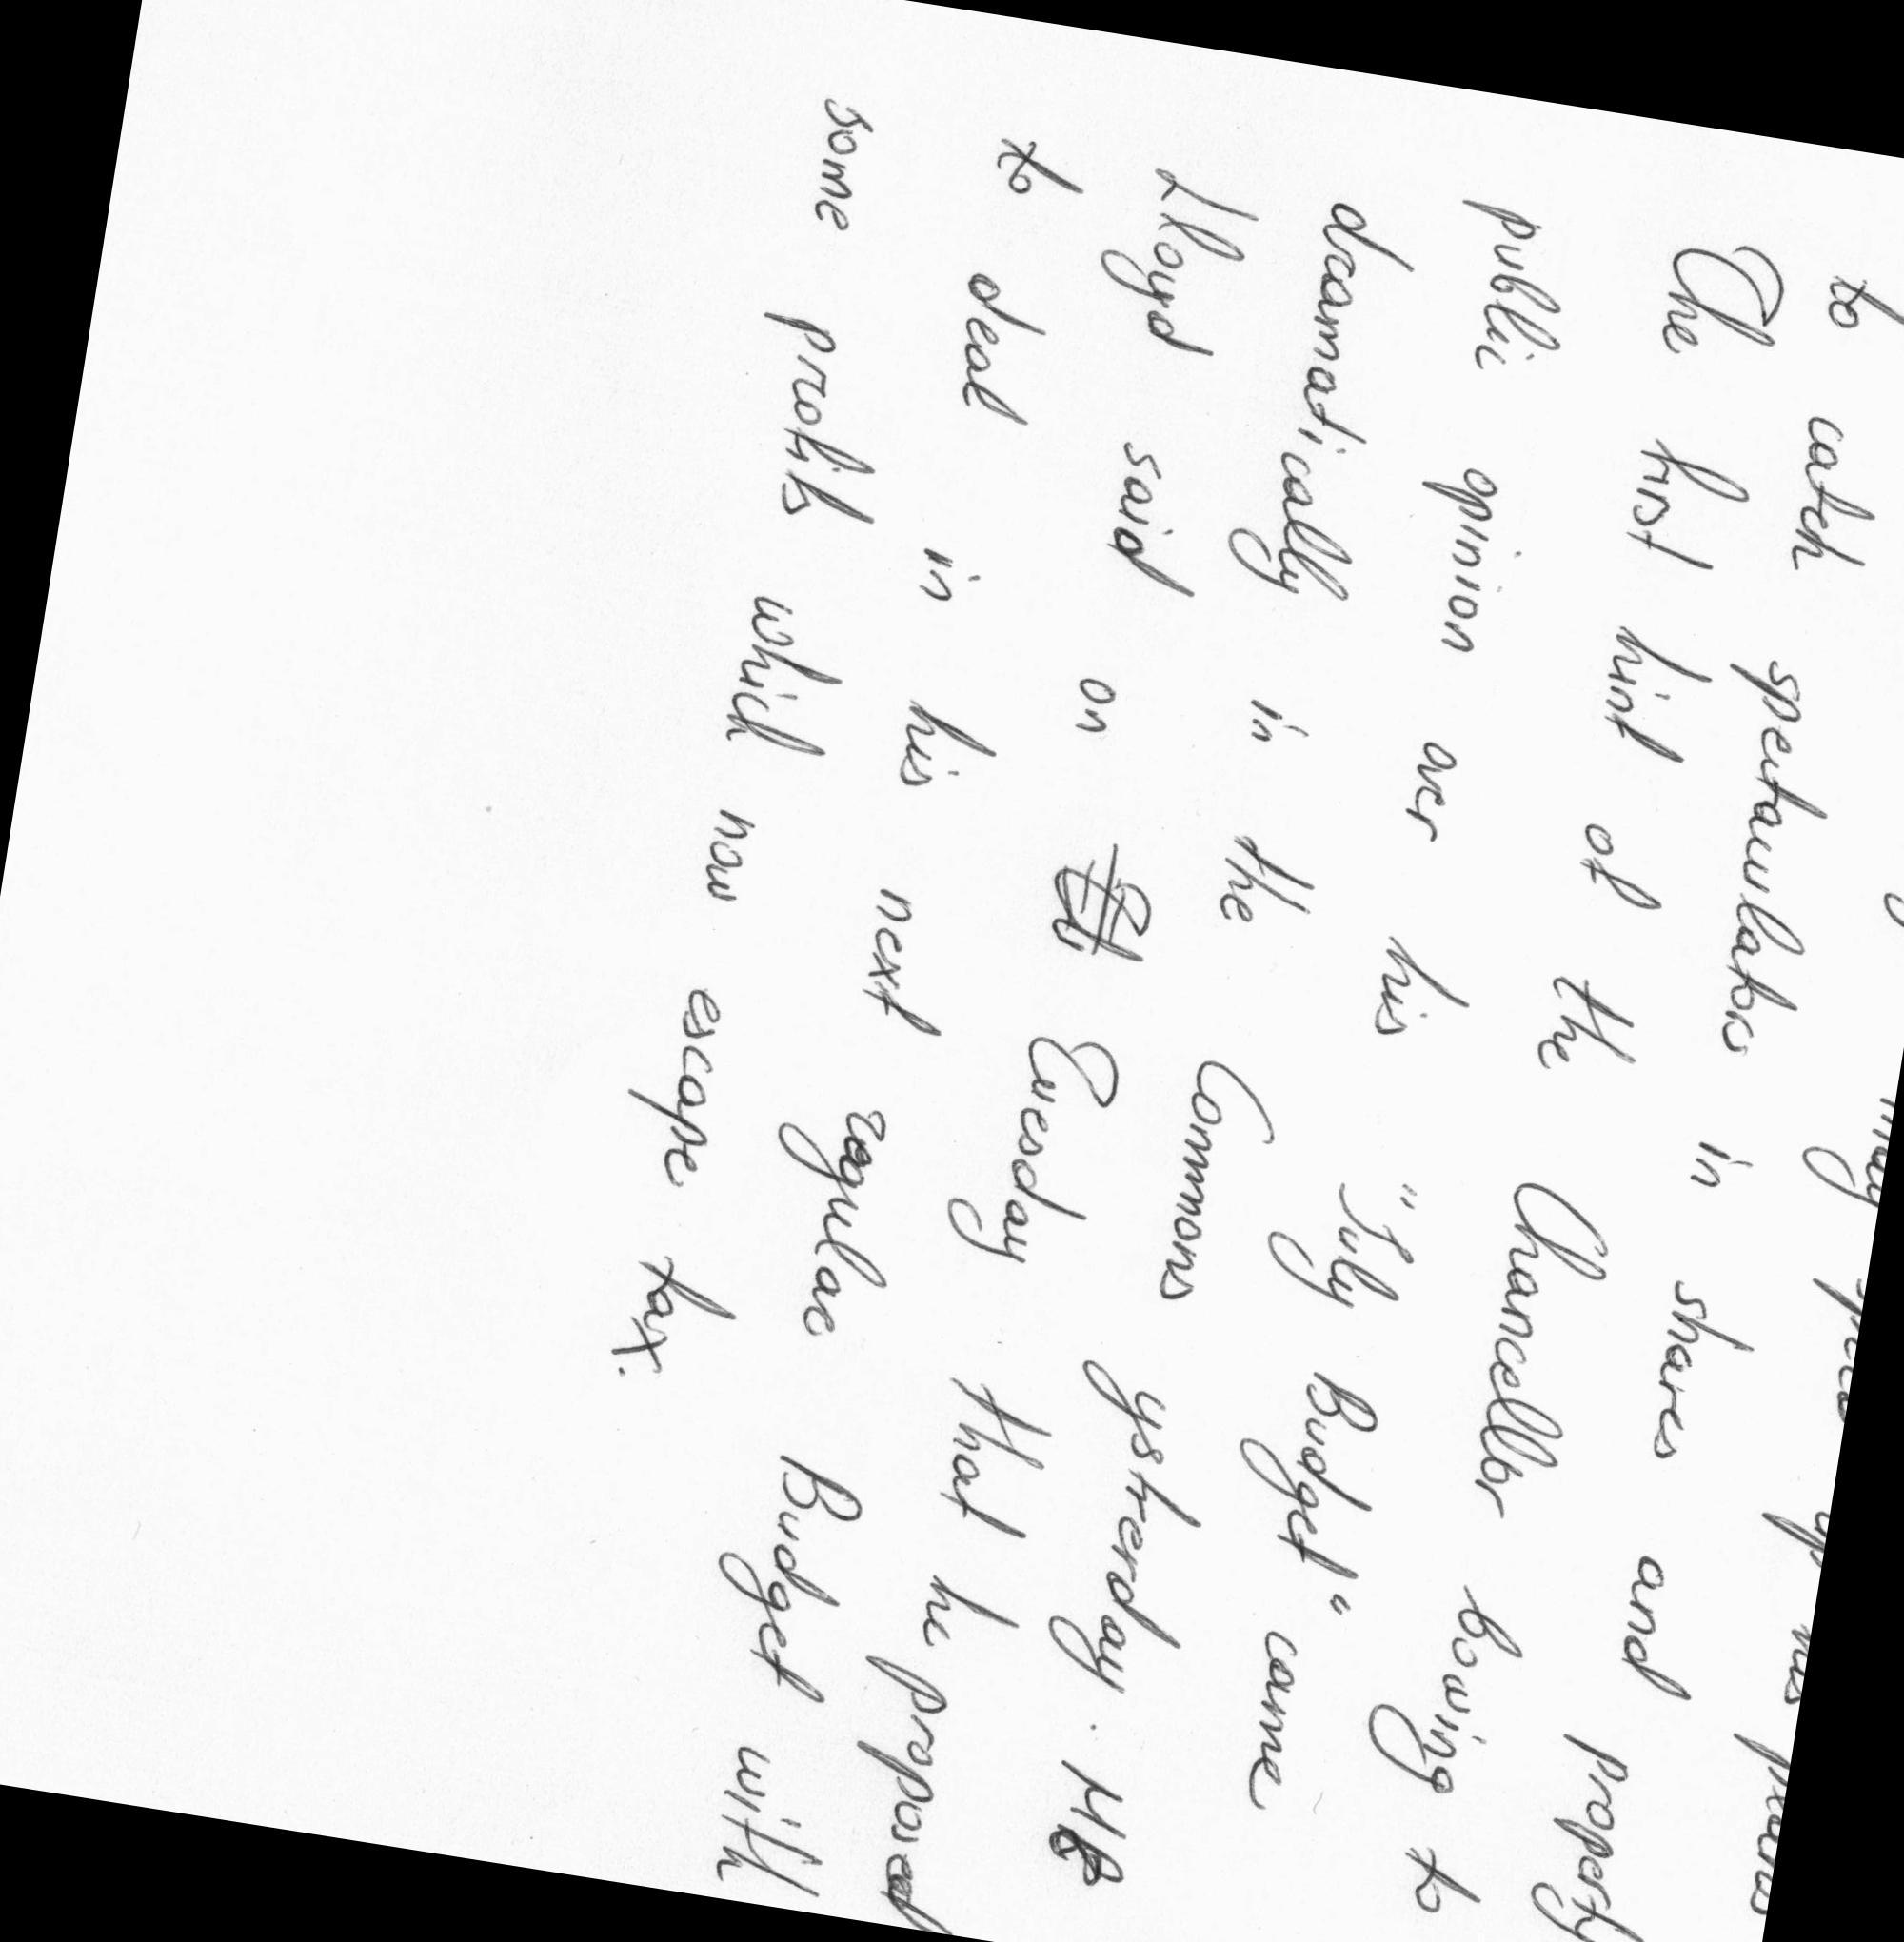 may speed up his plans
to catch spectaculators in shares and property
The first hint of the Chancellor bowing to
public opinion over his "July Budget" came
dramatically in the Commons ystrerday. Mr
Lloyd said on Tuesday that he proposed
to deal in his next regular Budget with
some profits which now escape tax.